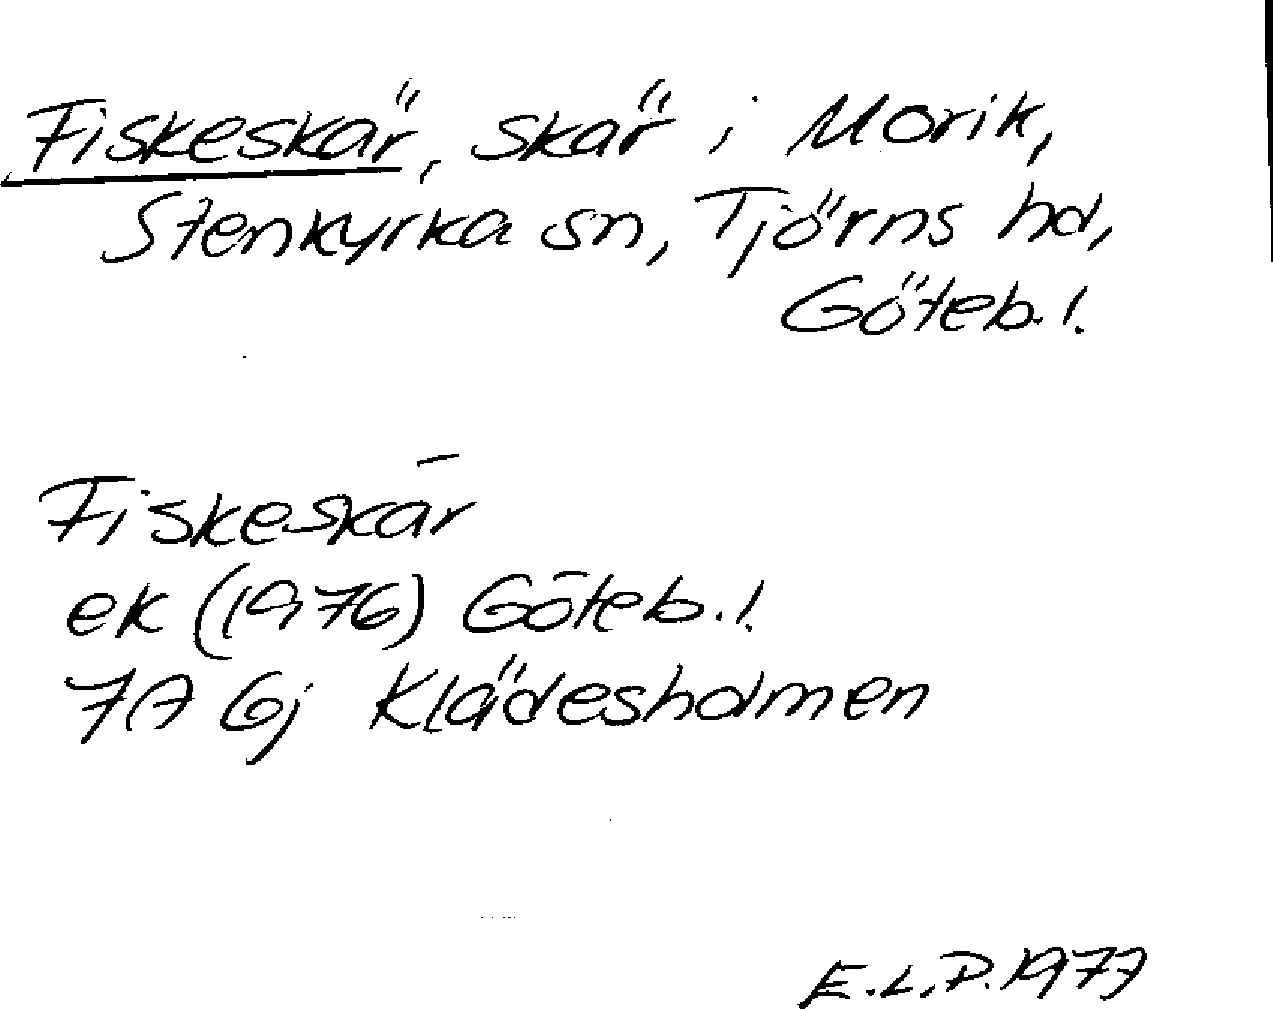 Fiskeskär, skär i Morik,
Stenkyrka sn, Tjörns hd,
Göteb. l.
Fiskeskär
ek (1976) Göteb. l.
7A 6j Klädesholmen
E.L.P. 1977